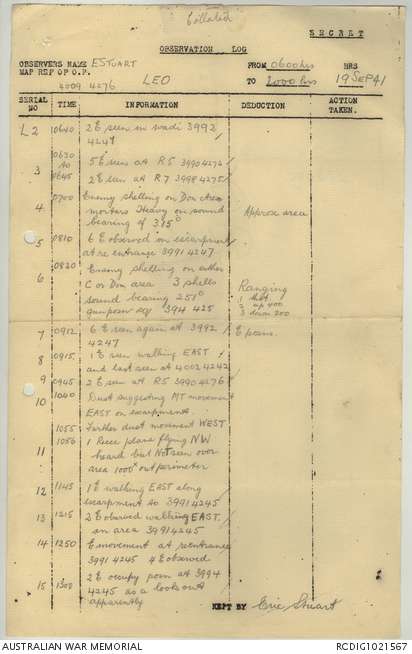 Collated
SECRET
OBSERVATION LOG
OBSERVERS NAME E STUART FROM 0600 hrs HRS
MAP REF OF O.P. 4009 4276 LEO TO 2000 hrs 19 SEP 41
SERIAL NO TIME INFORMATION DEDUCTION ACTION TAKEN.
L2 0640 2 E seen in wadi 3992
4247
0630
3 to 5 E seen at R5 3990 4272
0645 2 E seen at R7 3998 4275
0700 Enemy shelling on Don Area
4 mortars Heavy on sound Approx area
bearing of 315°
5 0810 6 E observed on escarpment
at re entrance 3991 4247
0820 Enemy shelling on either
6 C or Don area 3 shells Ranging
sound bearing 258° 1 shot
gunposn sq 394 425 2 up 400
3 down 200
7 0912 6 E seen again at 3992 E posns.
4247
8 0915 1 E seen walking EAST
and last seen at 4002 4242
9 0945 2 E seen at R5 3990 4276
10 1040 Dust suggesting MT movement
EAST on escarpments.
1055 Further dust movement WEST.
1056 1 Recce plane flying NW
11 heard but Not seen over
area 1000x out perimeter
12 1145 1 E walking EAST along
escarpment to 3991 4245
13 1215 2 E observed walking EAST
in area 3991 4245
14 1250 E movement at reentrance
3991 4245 4 E observed
15 1300 2 E occupy posn at 3994
4245 as a look out
apparently
KEPT BY Eric Stuart
AUSTRALIAN WAR MEMORIAL RCDIG1021567